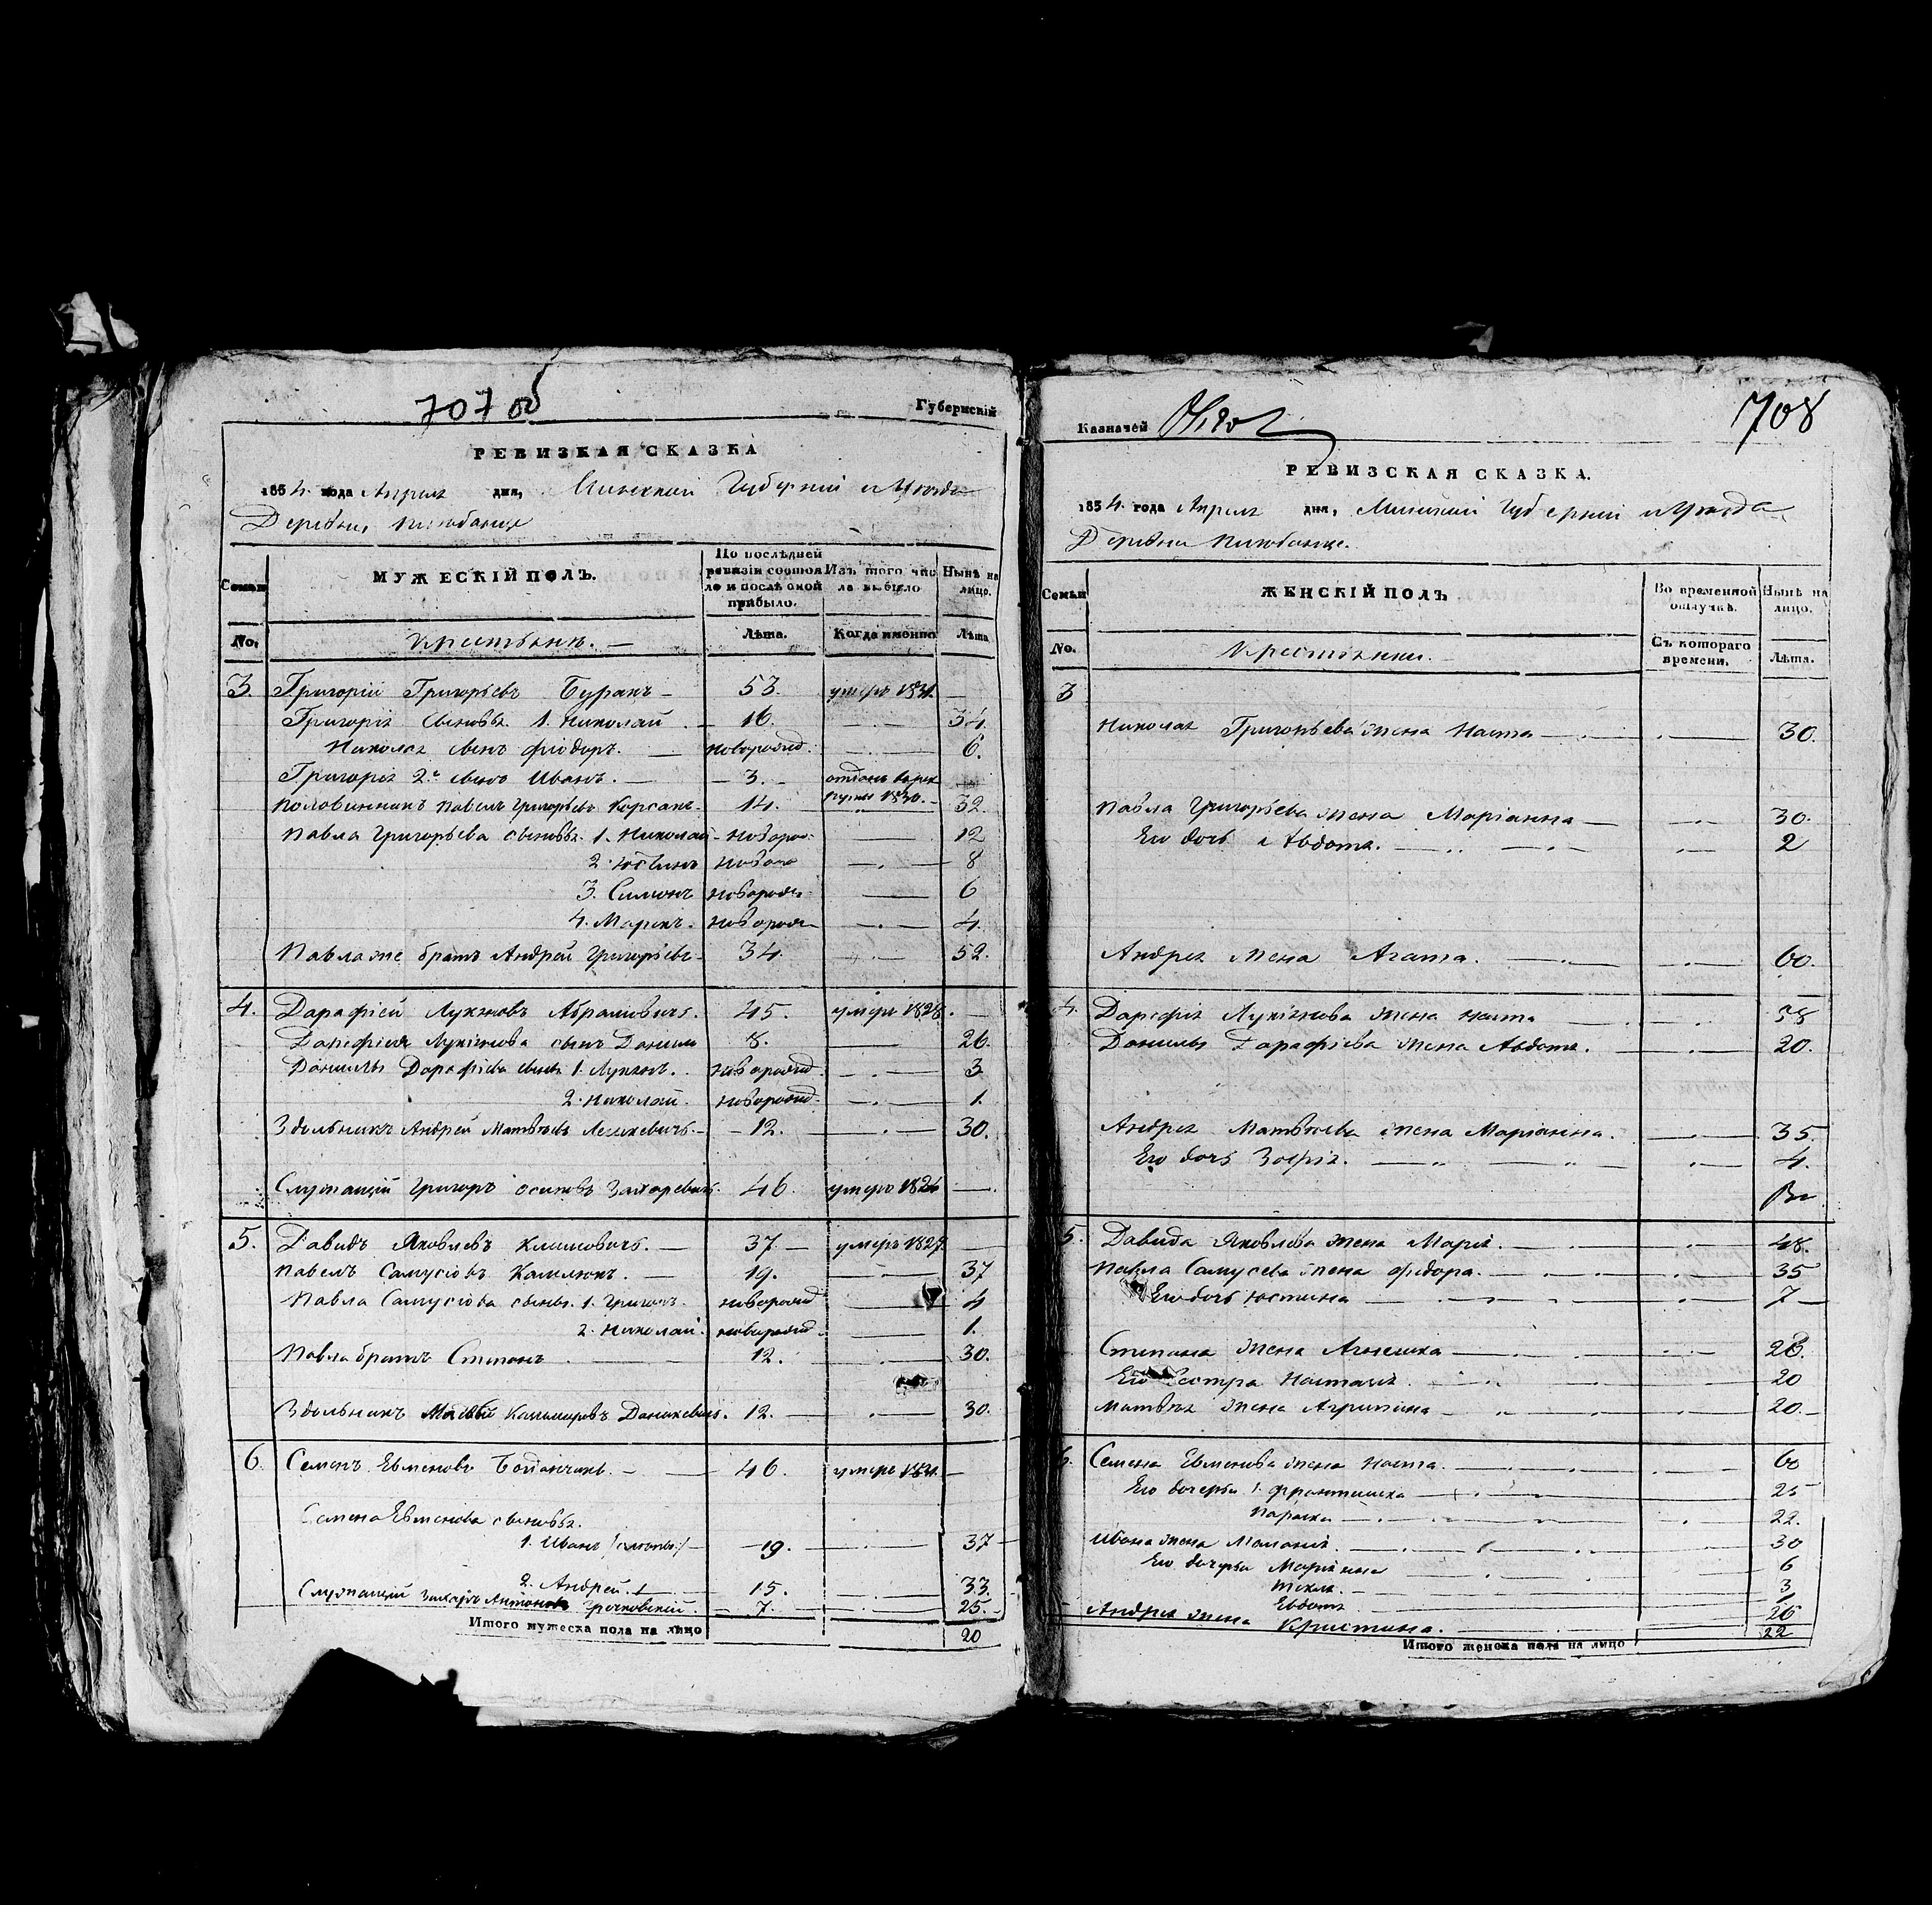 707 об
Губернскій
РЕВИЗКАЯ СКАЗКА
1834. года Апреля дня, Минской Губерній и Уѣзда
Деревни
Семьи
МУЖЕСКІЙ ПОЛЪ.
По последней ревизіи состояло и послѣ оной прибыло.
Изъ того числа выбыло
Нынѣ на лицо.
No.
Крестьянъ. —
Лѣта.
Когда именно
Лѣта
3. Григорій Григорьевъ Буракъ — 53. умеръ 1831. —
Григорія сыновья 1. Николай — 16. — 34.
Николая сынъ Фіодоръ. — новорожд. — 6.
Григорія 2й сынъ Иванъ. — 3. — отданъ въ рек
руты 1830. —
Половинникъ Павелъ Григорьевъ Корсакъ. 14. — 32.
Павла Григорьева сыновья. 1. Николай — новорo. — 12
2. Юстинъ ново — 8
3. Симонъ новорож. — 6
4. Маркъ. новорож — 4.
Павла же братъ Андрей Григорьевъ — 34. — 52.
4. Дарафіей Лукяновъ Абрамовичъ. 45. умеръ 1828. —
Дарафія Лукіянова сынъ Данила 8. — 26.
Данилы Дарафіева сыновья 1. Лукянъ. новорожд. — 3
2. Николай. новорожд. — 1.
Здольникъ Андрей Матвѣевъ — 12. — 30.
Служащій Григоръ Осиповъ Захаревичъ. 46. умеръ 1826 —
5. Давидъ Яковлевъ Климовичъ. — 37. — умеръ 1827. —
Павелъ Самусіовъ — 19. — 37
Павла Самусіова сыновья. 1. Григоръ. новорожд — 4
2. Николай. новорожд. — 1.
Павла братъ Степанъ — 12. — 30.
Здольникъ Матвѣй Казимировъ Данкевичъ. 12. — 30.
6. Семенъ Евменовъ — 46. умеръ 1831. —
Семена Евменова сыновья.
1. Иванъ — 19. — 37 —
2. Андрей. — 15. — 33.
Служащій Захаръ Антоновъ — 7. — 25. —
Итого мужеска пола на лицо 20
Казначей
708
РЕВИЗСКАЯ СКАЗКА.
1834. года Апреля дня, Минской Губерній и Уѣзда
Деревни
Семьи
ЖЕНСКІЙ ПОЛЪ
Во временной отлучкѣ.
Нынѣ на лицо.
No.
Крестьянки.
Съ котораго времени.
Лѣта.
3
Николая Григорьева жена Наста — 30.
Павла Григорьева жена Маріанна — 30.
Его дочь Авдота. — 2
Андрея жена Агата. — 60.
4. Дарафія Лукіянова жена Наста — 58
Данилы Дарафіева жена Авдота. — 20.
Андрея Матвѣева жена Маріанна. — 35.
Его дочь Зофія. — 4.
5. Давида Яковлева жена Марія. — 48.
Павла Самусева жена Федора. — 35
Его дочь Юстина — 7 —
Степана жена Агнешка — 26.
Его сестра Наталя. — 20
Матвѣя жена Агрипина — 20. —
6. Семена Евменова жена Наста. — 60
Его дочерьи 1. Франтишка — 25
Параска — 22.
Ивана жена Маланія. — 30
Его дочерьи Маріянна — 6
Текля. — 3
Евдота — 1
Андрея жена Кристина. — 26
Итого женска пола на лицо 22